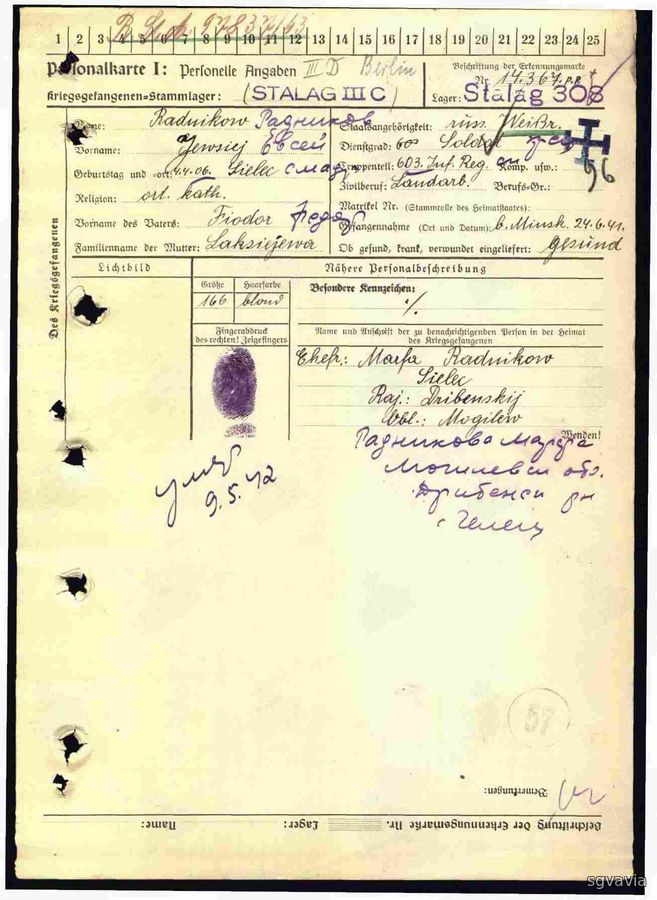 1 2 3 4 5 6 7 8 9 10 11 12 13 14 15 16 17 18 19 20 21 22 23 24 25
Personalkarte I: Personelle Angaben III D Berlin
Beschriftung der Erkennungsmarke
Nr. 14.367
Kriegsgefangenen-Stammlager: (STALAG III C)
Lager: Stalag 308
Des Kriegsgefangenen
Name: Radnikow Радников
Vorname: Jewsiej Евсей
Geburtstag und -ort: 4.4.06. Sielec
Religion: ort. kath.
Vorname des Vaters: Fiodor Федор
Familienname der Mutter: Laksiejewa
Staatsangehörigkeit: russ. Weißr.
Dienstgrad: Soldat
Truppenteil: 603. Inf. Reg. Komp. usw.:
Zivilberuf: Landarb. Berufs-Gr.:
Matrikel Nr. (Stammrolle des Heimatstaates):
Gefangennahme (Ort und Datum): b. Minsk. 24.6.41.
Ob gesund, krank, verwundet eingeliefert: gesund
96
Lichtbild
Nähere Personalbeschreibung
Größe Haarfarbe
166 blond
Besondere Kennzeichen:
./.
Fingerabdruck
des rechten! Zeigefingers
Name und Anschrift der zu benachrichtigenden Person in der Heimat
des Kriegsgefangenen
Ehefr.: Marfa Radnikow
Sielec
Raj.: Dribenskij
Obl.: Mogilew
Wenden!
Радникова Марфа
Могилевск обл.
Дрибенск рн
умер
9.5.42
57
Bemerkungen:
Beschriftung der Erkennungsmarke Nr. Lager: Name:
sgvavia